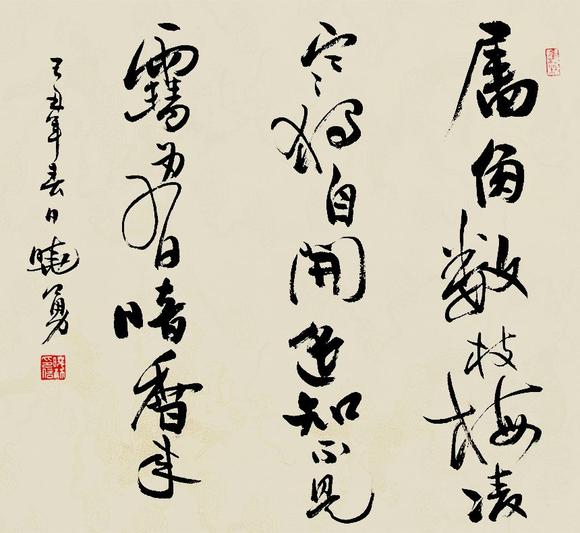 墙角数枝梅凌
寒独自開遥知不是
雪为有暗香来
己丑年春日晓勇